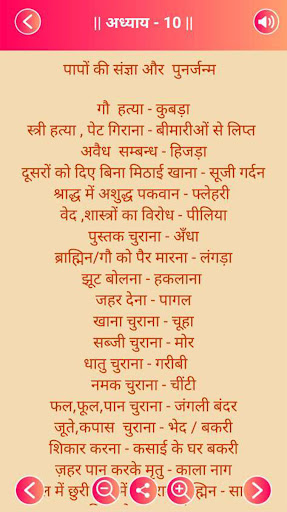 || अध्याय - 10 ||
पापों की संज्ञा और पुनर्जन्म
गौ हत्या - कुबड़ा
स्त्री हत्या , पेट गिराना - बीमारीओं से लिप्त
अवैध सम्बन्ध - हिजड़ा
दूसरों को दिए बिना मिठाई खाना - सूजी गर्दन
श्राद्ध में अशुद्ध पकवान - फ्लेहरी
वेद ,शास्त्रों का विरोध - पीलिया
पुस्तक चुराना - अँधा
ब्राह्मिन/गौ को पैर मारना - लंगड़ा
झूट बोलना - हकलाना
जहर देना - पागल
खाना चुराना - चूहा
सब्जी चुराना - मोर
धातु चुराना - गरीबी
नमक चुराना - चींटी
फल,फूल,पान चुराना - जंगली बंदर
जूते,कपास चुराना - भेद / बकरी
शिकार करना - कसाई के घर बकरी
ज़हर पान करके मृतु - काला नाग
में छुरी